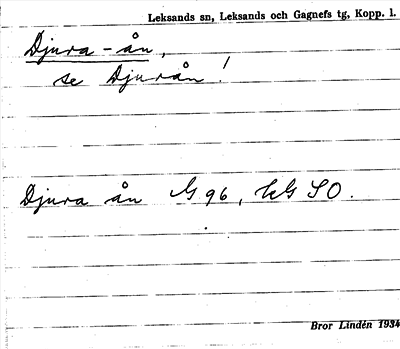 Leksands sn, Leksands och Gagnefs tg, Kopp. l.
Djura-ån,
se Djurån!
Djura ån G 96, kG SO.
Bror Lindén 1934